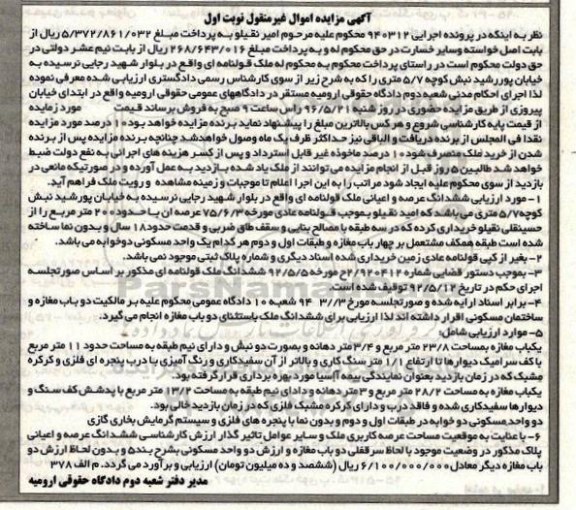 آگهی مزایده اموال غیرمنقول نوبت اول
نظر به اینکه در پرونده اجرایی ۹۴۰۳۱۲ محکوم علیه مرحوم امیر نقیلو به پرداخت مبلغ ۵/۳۷۲/۸۶۱/۰۳۲ ریال از
بابت اصل خواسته وسایر خسارت در حق محکوم له و به پرداخت مبلغ ۲۶۸/۶۴۳/۰۱۶ ریال از بابت نیم عشر دولتی در
حق دولت محکوم است در راستای پرداخت محکوم به محکوم له ملک قولنامه ای واقع در بلوار شهید رجایی نرسیده به
خیابان پوررشید نبش کوچه ۵/۷ متری را که به شرح زیر از سوی کارشناس رسمی دادگستری ارزیابی شده معرفی نموده
لذا اجرای احکام مدنی شعبه دوم دادگاه حقوقی ارومیه مستقر در دادگاههای عمومی حقوقی ارومیه واقع در ابتدای خیابان
پیروزی از طریق مزایده حضوری در روز شنبه ۹۶/۵/۲۱ راس ساعت ۹ صبح به فروش برساند قیمت مورد زمایده
از قیمت پایه کارشناسی شروع و هر کس بالاترین مبلغ را پیشنهاد نماید برنده مزایده خواهد بود ۱۰ درصد مورد مزایده
نقدا فی المجلس از برنده دریافت و الباقی نیز حداکثر ظرف یک ماه وصول خواهد شد چنانچه برنده مزایده پس از برنده
شدن از خرید ملک منصرف شود ۱۰ درصد ماخوذه غیر قابل استرداد و پس از کسر هزینه های اجرائی به نفع دولت ضبط
خواهد شد طالبین ۵ روز قبل از انجام مزایده می توانند از ملک یاد شده بازدید به عمل آورده و در صورتیکه مانعی در
بازدید از سوی محکوم علیه ایجاد شود مراتب را به این اجرا اعلام تا موجبات و زمینه مشاهده و رویت ملک فراهم آید.
۱- مورد ارزیابی ششدانگ عرصه و اعیانی ملک قولنامه ای واقع در بلوار شهید رجایی نرسیده به خیابان پورشید نبش
کوچه ۵/۷ متری می باشد که امید نقیلو بموجب قولنامه عادی مورخه ۷۵/۶/۳ عرصه آن با حدود ۲۰۰ متر مربع را از
حسینقلی نقیلو خریداری کرده که در سه طبقه با مصالح بنایی و سقف طاق ضربی و قدمت حدود ۱۸ سال و بدون نما ساخته
شده است طبقه همکف مشتمل بر چهار باب مغازه و طبقات اول و دوم هر کدام یک واحد مسکونی دوخوابه می باشد.
۲- بغیر از کپی قولنامه عادی زمین خریداری شده اسناد دیگری و شماره پلاک ثبتی موجود نمی باشد.
۳- بموجب دستور قضایی شماره ۹۲۰۴۱۲/ج۲ مورخه ۹۲/۵/۵ ششدانگ ملک قولنامه ای مذکور بر اساس صورتجلسه
اجرای حکم در تاریخ ۹۲/۵/۱۲ توقیف شده است.
۴- برابر اسناد ارایه شده و صورتجلسه مورخ ۳/۳ ۹۴ شعبه ۱۰ دادگاه عمومی محکوم علیه بر مالکیت دو باب مغازه و
ساختمان مسکونی اقرار داشته اند لذا ارزیابی برای ششدانگ ملک باستثنای دو باب مغازه انجام می گیرد.
۵- موارد ارزیابی شامل:
یکباب مغازه بمساحت ۲۳/۸ متر مربع و ۳/۴ متر دهانه و بصورت دو نبش و دارای نیم طبقه به مساحت حدود ۱۱ متر مربع
با کف سرامیک دیوارها تا ارتفاع ۱/۱ متر سنگ کاری و بالاتر از آن سفیدکاری و رنگ آمیزی با درب پنجره ای فلزی و کرکره
مشبک که در زمان بازدید بعنوان نمایندگی بیمه آسیا مورد بهره برداری قرار گرفته بود.
یکباب مغازه به مساحت ۲۸/۲ متر مربع و ۳ متر دهانه و دادای نیم طبقه به مساحت ۱۳/۲ متر مربع با پدشش کف سنگ و
دیوارها سفیدکاری شده و فاقد درب و دارای کرکره مشبک فلزی که در زمان بازدید خالی بود.
دو واحد مسکونی دو خوابه در طبقات اول و دوم و بدون نما با پنجره های فلزی و سیستم گرمایش بخاری گازی
۶- با عنایت به موقعیت مساحت عرصه کاربری ملک و سایر عوامل تاثیر گذار ارزش کارشناسی ششدانگ عرصه و اعیانی
پلاک مذکور در وضعیت موجود با لحاظ سرقفلی دو باب مغازه و ارزش دو واحد مسکونی بشرح بند ۵ و بدون لحاظ ارزش دو
باب مغازه دیگر معادل ۶/۱۰۰/۰۰۰/۰۰۰ ریال (ششصد و ده میلیون تومان) ارزیابی و برآورد می گردد. م الف ۳۷۸
مدیر دفتر شعبه دوم دادگاه حقوقی ارومیه